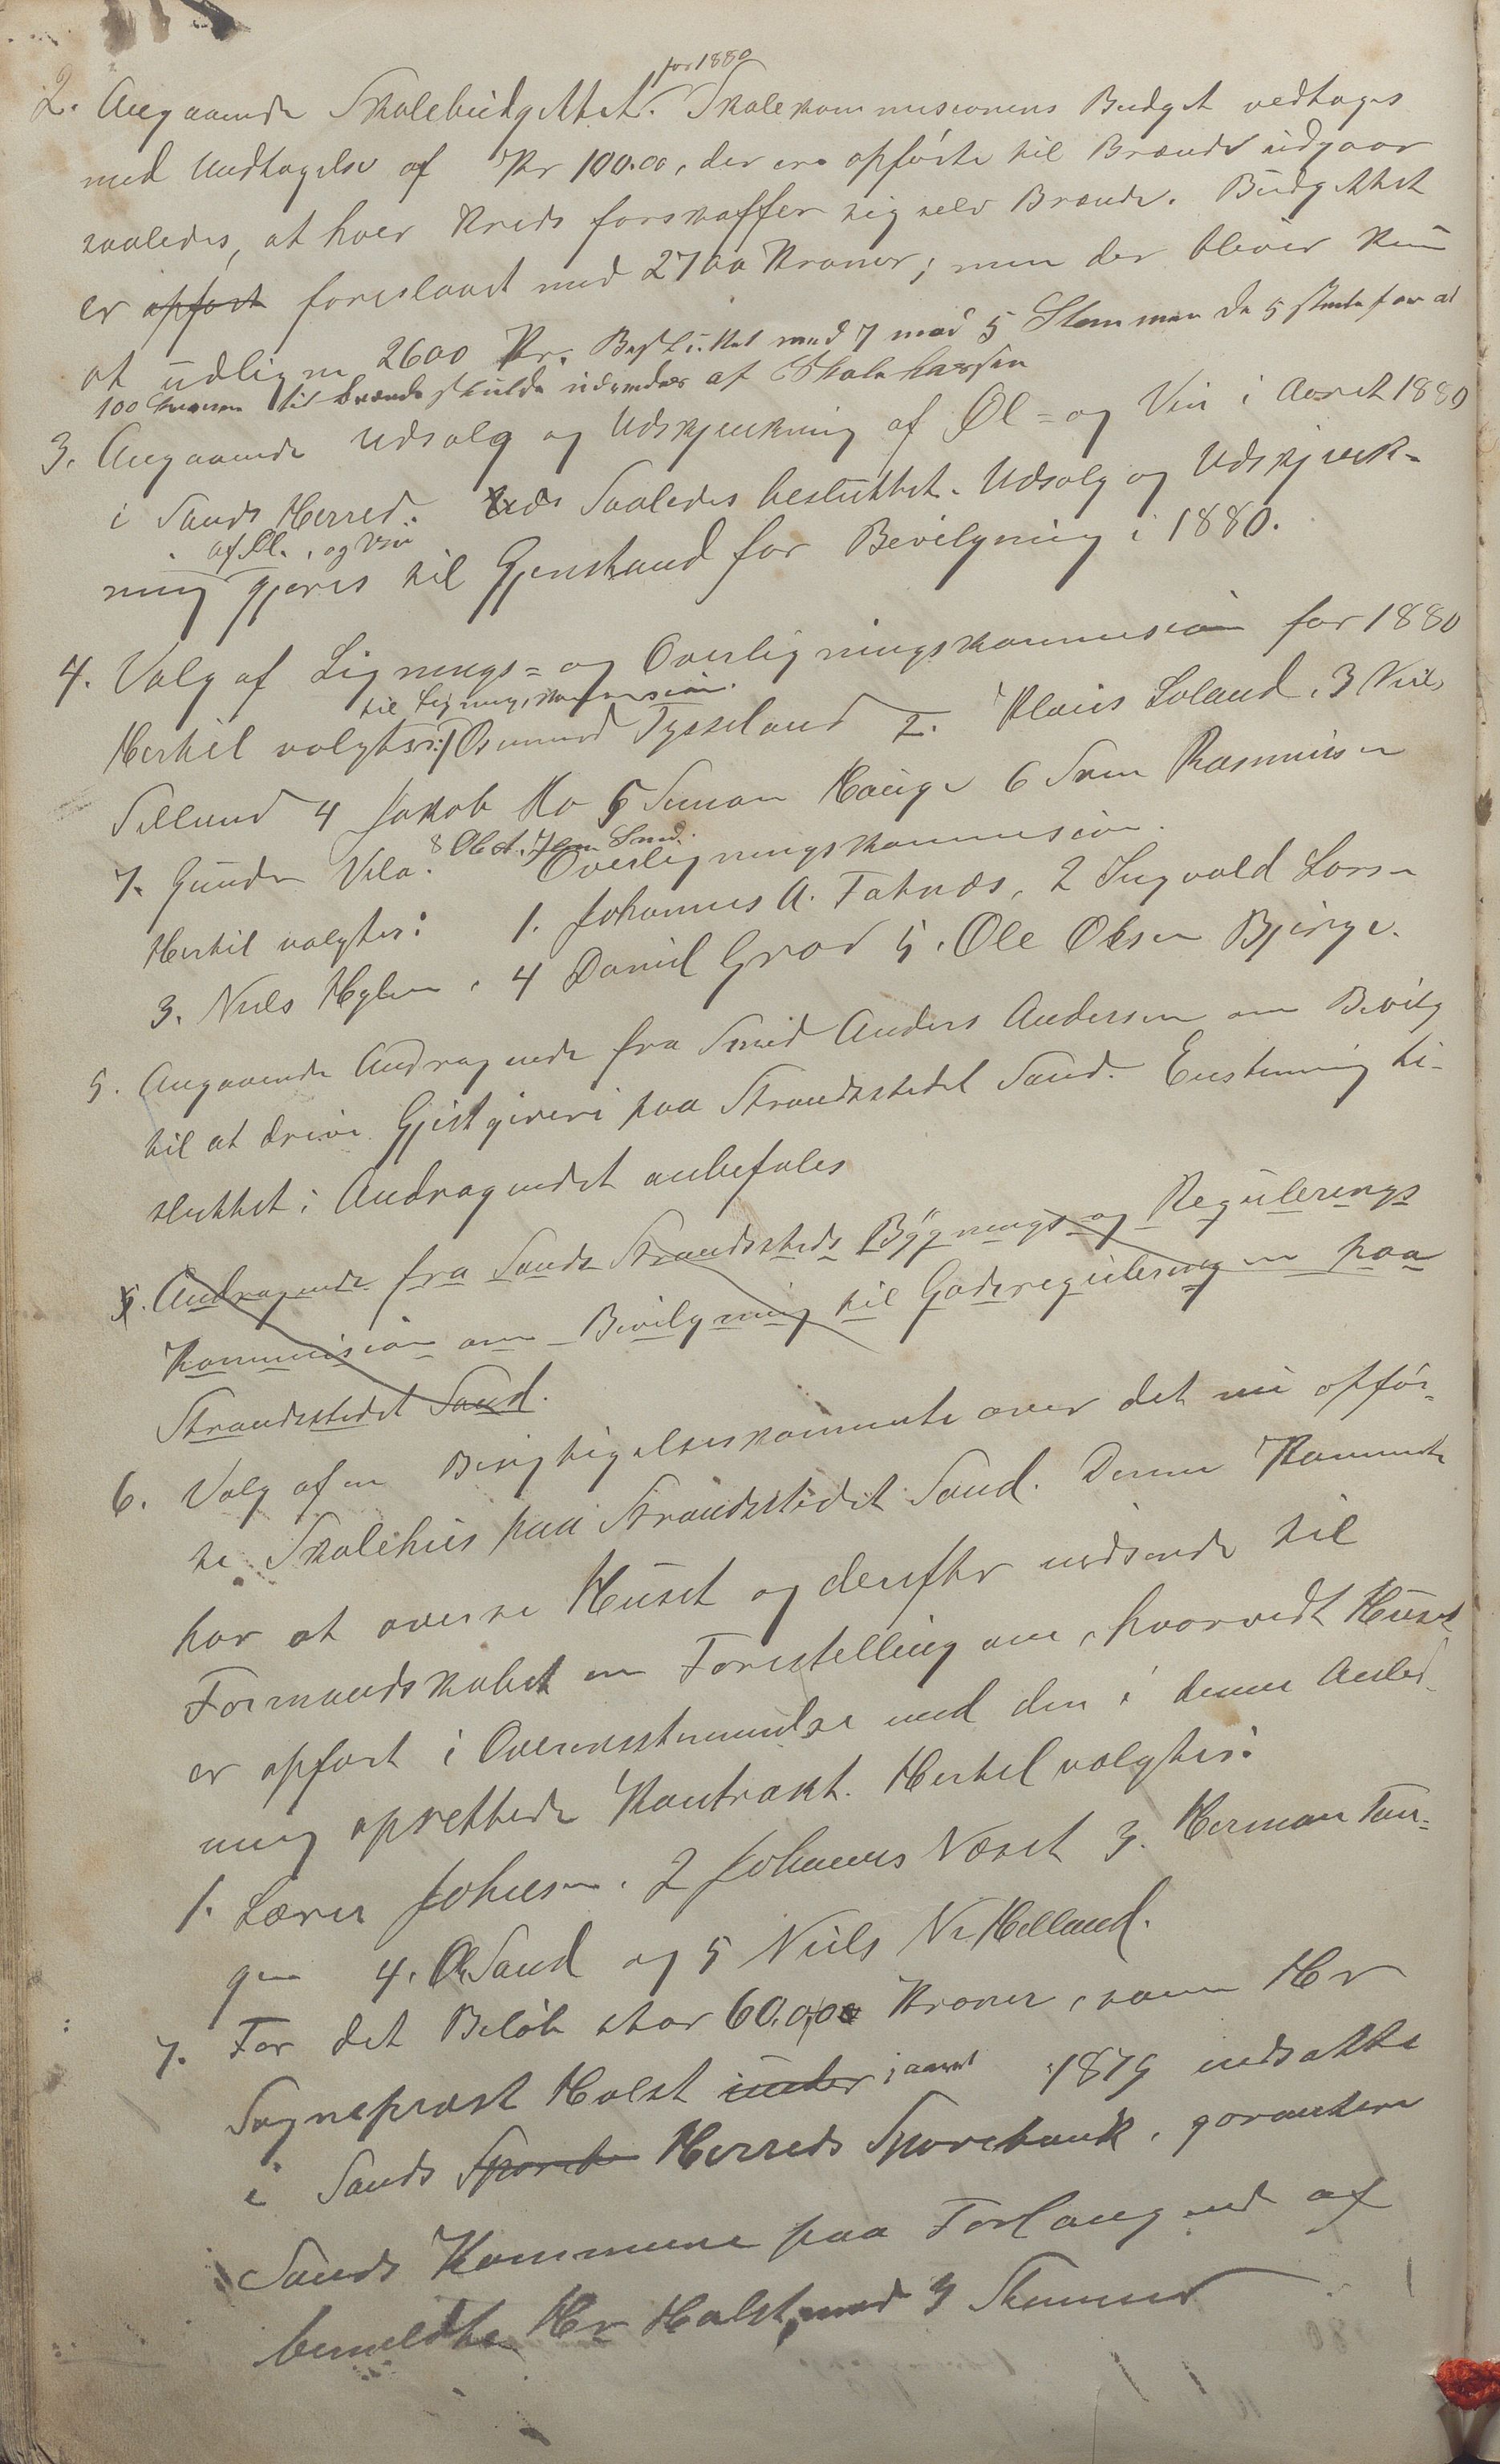 for 1880
2. Angaaende Skolebudgettet. Skolekommisionens Budget vedtages
med Undtagelse af Kr 100.00, der ere opførte til Brænde udgaar
saaledes, at hver Kreds forskaffer sig selv Brænde. Budgettet
er opført foreslaaet med 2700 Kroner; men der bliver kun
at udligne 2600 Kr. Besluttet med 7 mod 5 Stemmer da 5 stemte for at
100 Kroner til Brænde skulde udredes af Skolekassen
3. Angaaende Udsalg og Udskjenkning af Øl- og Vin i Aaret 1880
i Sands Herred. Saaledes besluttet. Udsalg og Udskjenk-
af Øl. og Vin
ning gjøres til Gjenstand for Bevilgning i 1880.
4. Valg af Lignings- og Overligningskommision for 1880
til Ligningskommision.
Hertil valgtes: 1 Osmund Tysseland 2. Klaus Loland, 3 Niels
Selland 4 Jakob Mo 5 Simon Hauge 6 Sven Rasmussen
7. Gunder Vela.
8 Olset. Jon Sand.
Overligningskommision.
Hertil valgtes: 1. Johannes A. Fatnæs, 2 Ingvald Larsen
3. Niels Hylen, 4 Daniel Grov 5. Ole Olsen Bjørge.
5. Angaaende Andragende fra Smed Anders Andersen om Bevilg
til at drive Gjestgiveri paa Strandstedet Sand. Enstemmig be-
sluttet: Andragendet anbefales
5. Andragende fra Sands Strandsteds Bygnings og Regulerings
Kommision om Bevilgning til Gadereguleringen paa
Strandstedet Sand.
6. Valg af en Besigtigelseskommite over det ny opfør-
te Skolehus paa Strandstedet Sand. Denne Kommite
har at overse Huset og derefter indsende til
Formandskabet en Forestelling om, hvorvidt Huset
er opført i Overensstemmelse med den i denne Anled-
ning oprettede Kontrakt. Hertil valgtes:
1. Lærer Johnsen. 2 Johannes Næset 3. Herman Tan-
gen 4. O. Sand og 5 Niels N. Helland.
7. For det Beløb stor 60.000 Kroner, som Hr
Sogneprest Holst under i aaret 1879 indsatte
i Sands Spareb Herreds Sparebank, garantere
Sands Kommune paa Forlangende af
bemeldte Hr Holst, mod 3 Stemmer